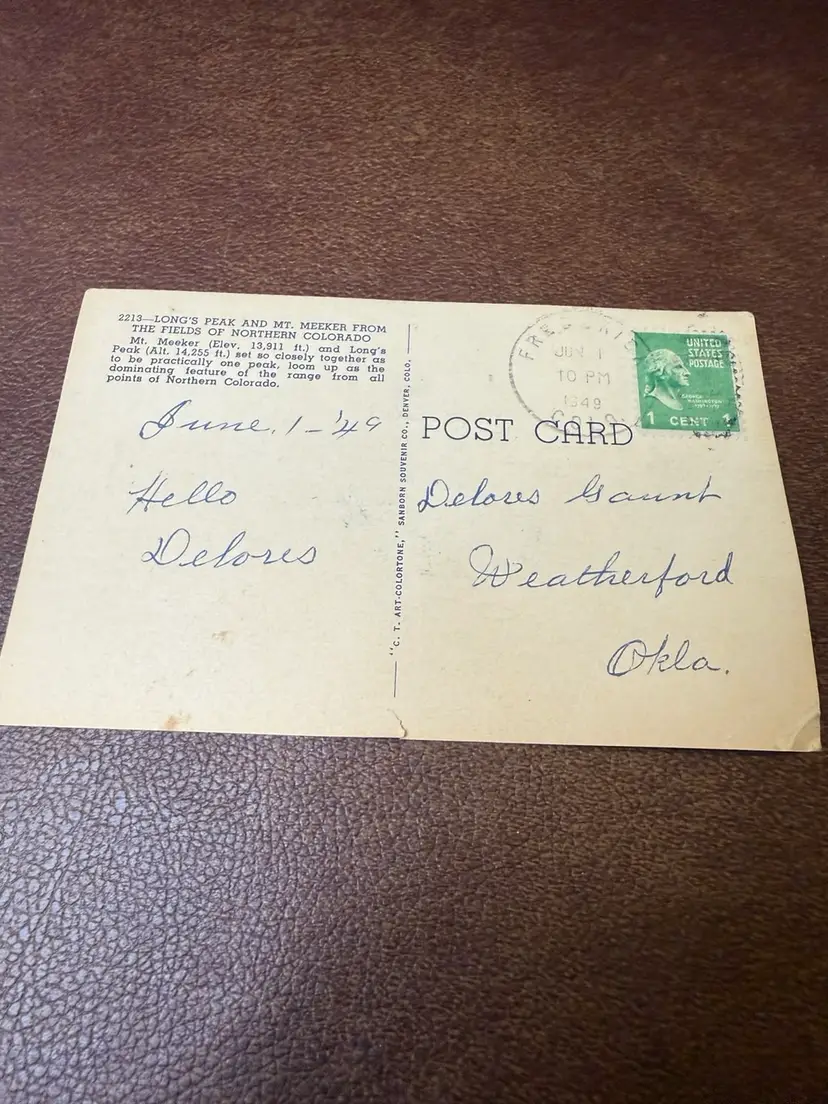 2213—LONG'S PEAK AND MT. MEEKER FROM
THE FIELDS OF NORTHERN COLORADO
Mt. Meeker (Elev. 13,911 ft.) and Long's
Peak (Alt. 14,255 ft.) set so closely together as
to be practically one peak, loom up as the
dominating feature of the range from all
points of Northern Colorado.
June, 1-'49
Hello
Delores
"C. T. ART-COLORTONE," SANBORN SOUVENIR CO., DENVER, COLO.
JUN 1
10 PM
1949
COLO.
UNITED
STATES
POSTAGE
GEORGE
WASHINGTON
1 CENT 1
POST CARD
Delores Gaunt
Weatherford
Okla.